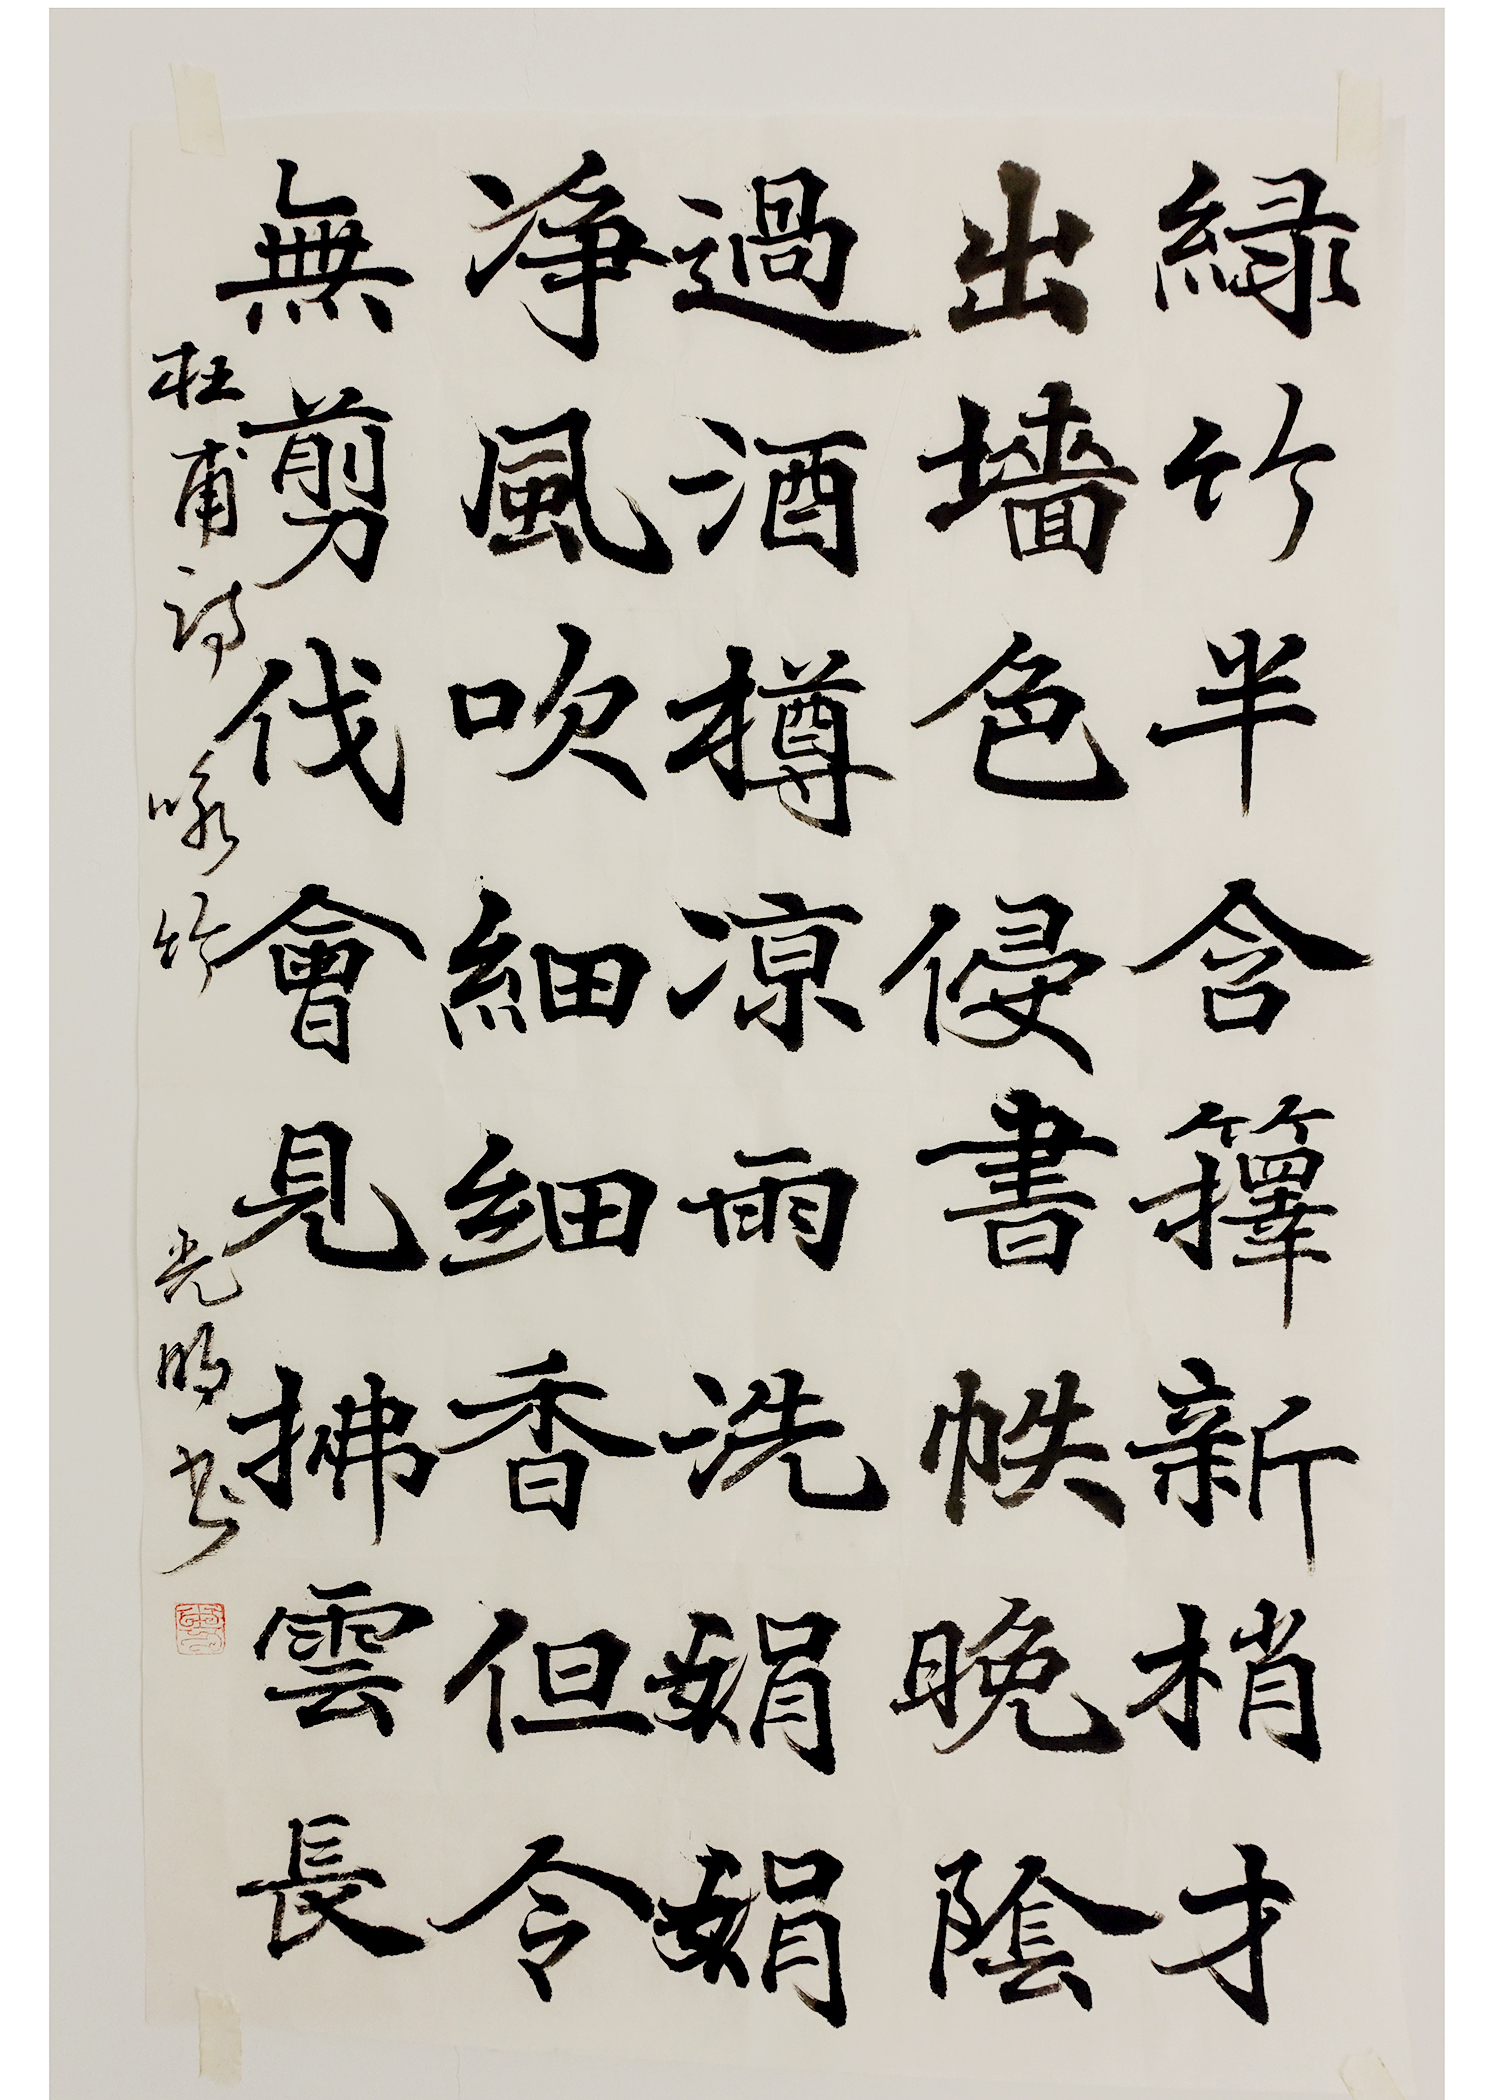 緑竹半含籜新梢才
出墻色侵書帙晚陰
過酒樽凉雨洗娟娟
凈風吹細細香但令
無剪伐會見拂雲長
杜甫詩咏竹 光明书